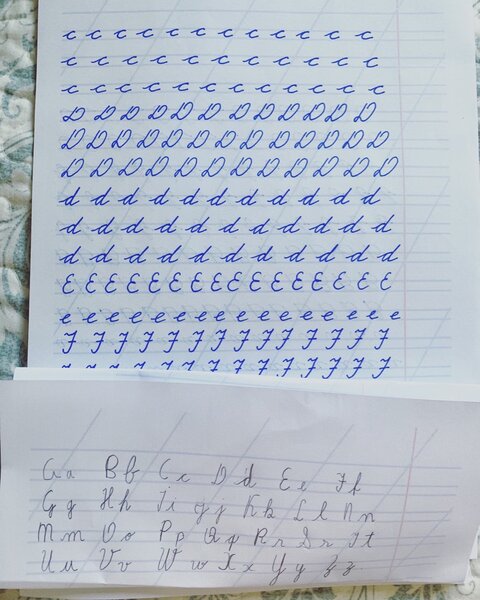 c c c c c c c c c c c c
c c c c c c c c c c c c
c c c c c c c c c c c c
D D D D D D D D D D D D
D D D D D D D D D D D D D
D D D D D D D D D D D D
d d d d d d d d d d d
d d d d d d d d d d d
d d d d d d d d d d d
E E E E E E E E E E E E E E E
e e e e e e e e e e e e e e e e e
F F F F F F F F F F F F F F
F F F F F F F F F F F F F F
Aa Bb Cc Dd Ee Ff
Gg Hh Ii Jj Kk Ll Nn
Mm Oo Pp Qq Rr Ss Tt
Uu Vv Ww Xx Yy Zz